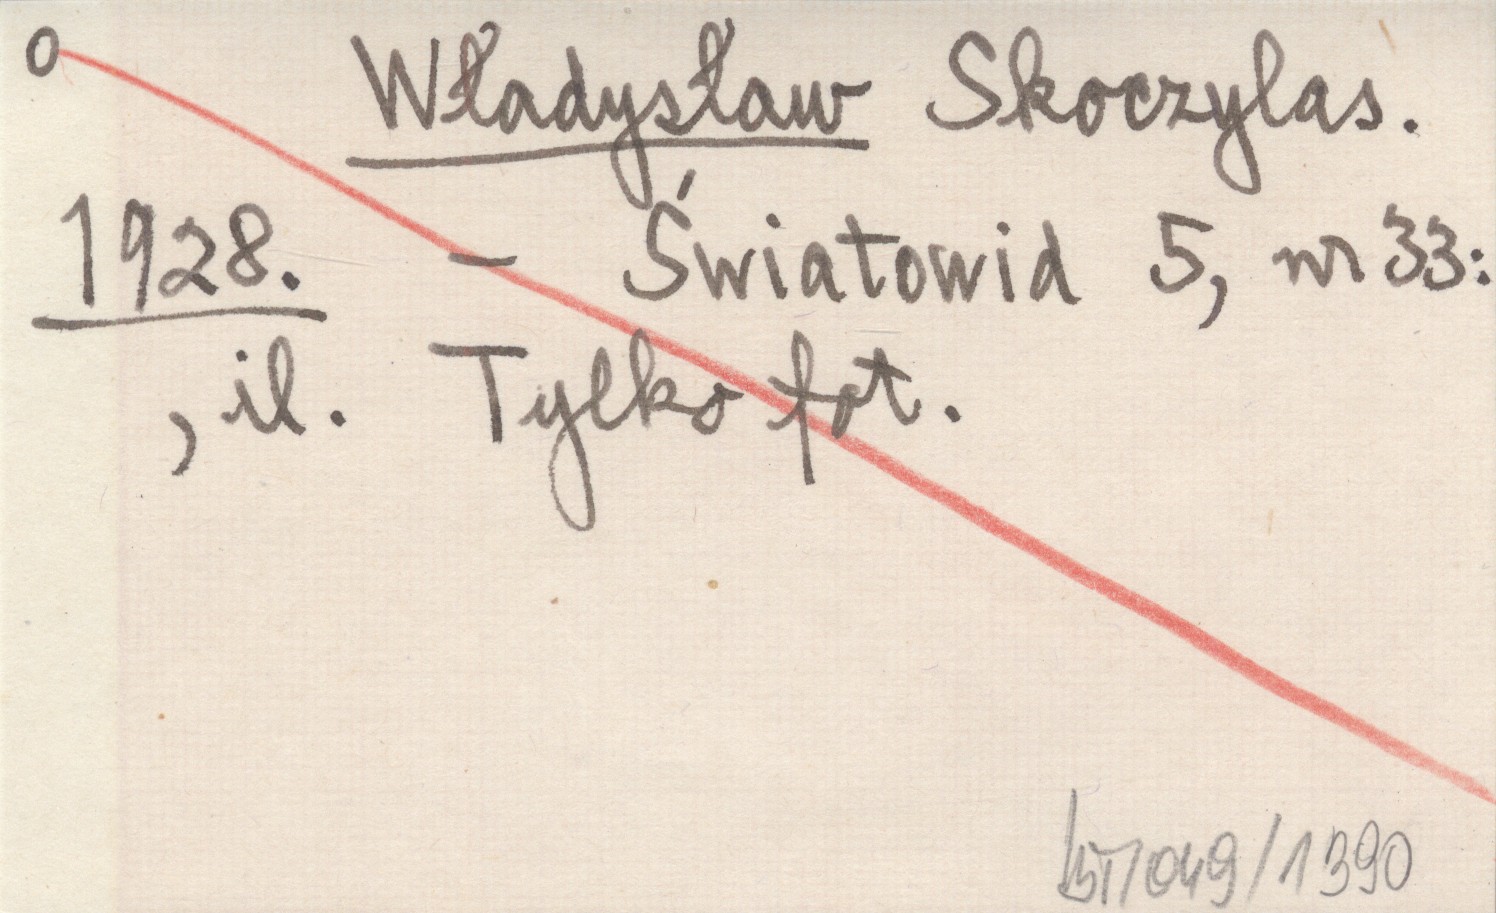 o Władysław Skoczylas.
1928. – Światowid 5, nr 33:
, il. Tylko fot.
/049/1390